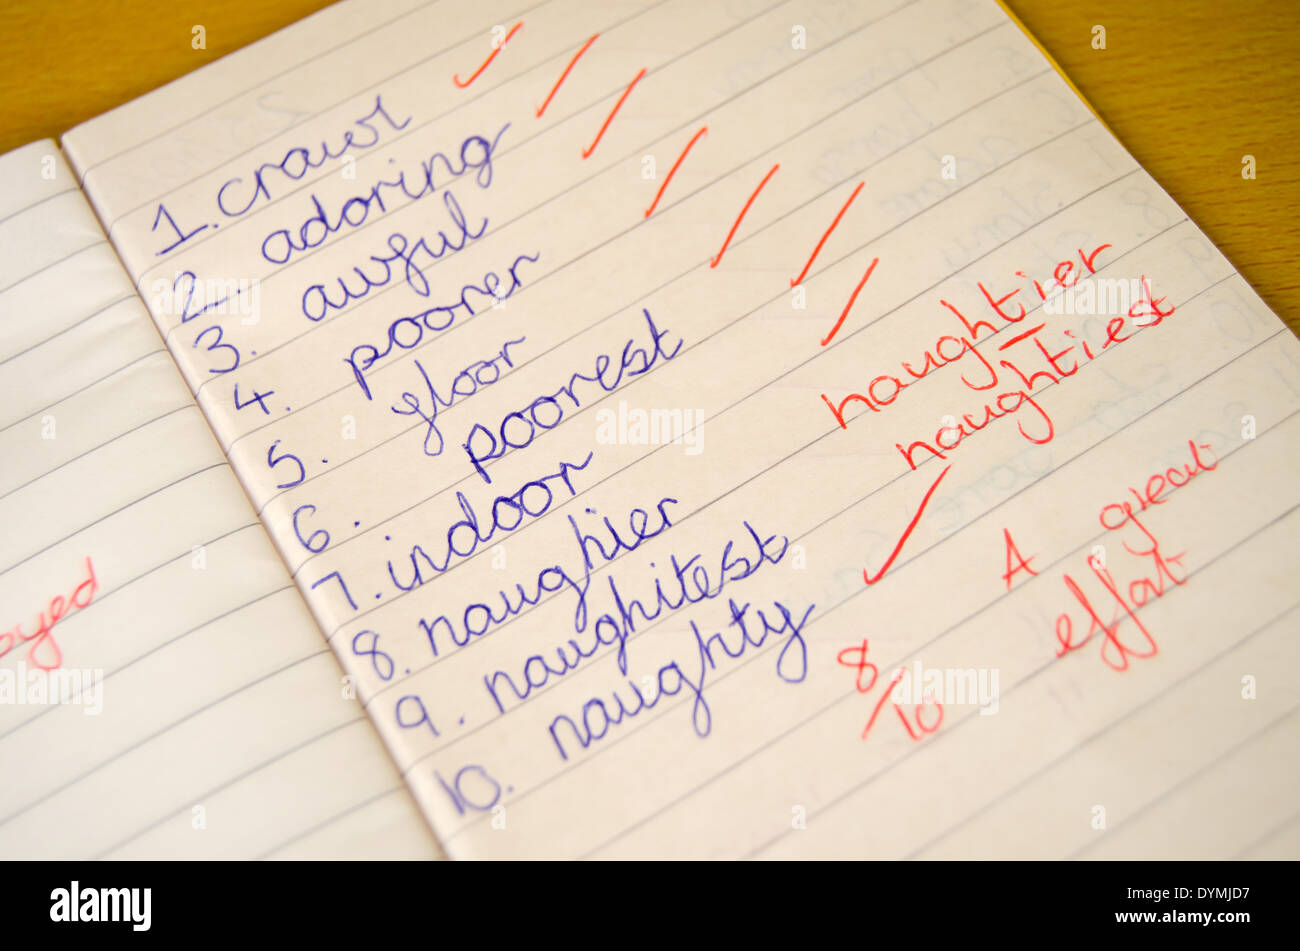 1. crawl
2. adoring
3. awful
4. poorer
5. floor
6. poorest
7. indoor
8. naughier naughtier
9. naughitest naughtiest
10. naughty
8/10
A great
effort
oyed
alamy
a
alamy
Image ID: DYMJD7
www.alamy.com